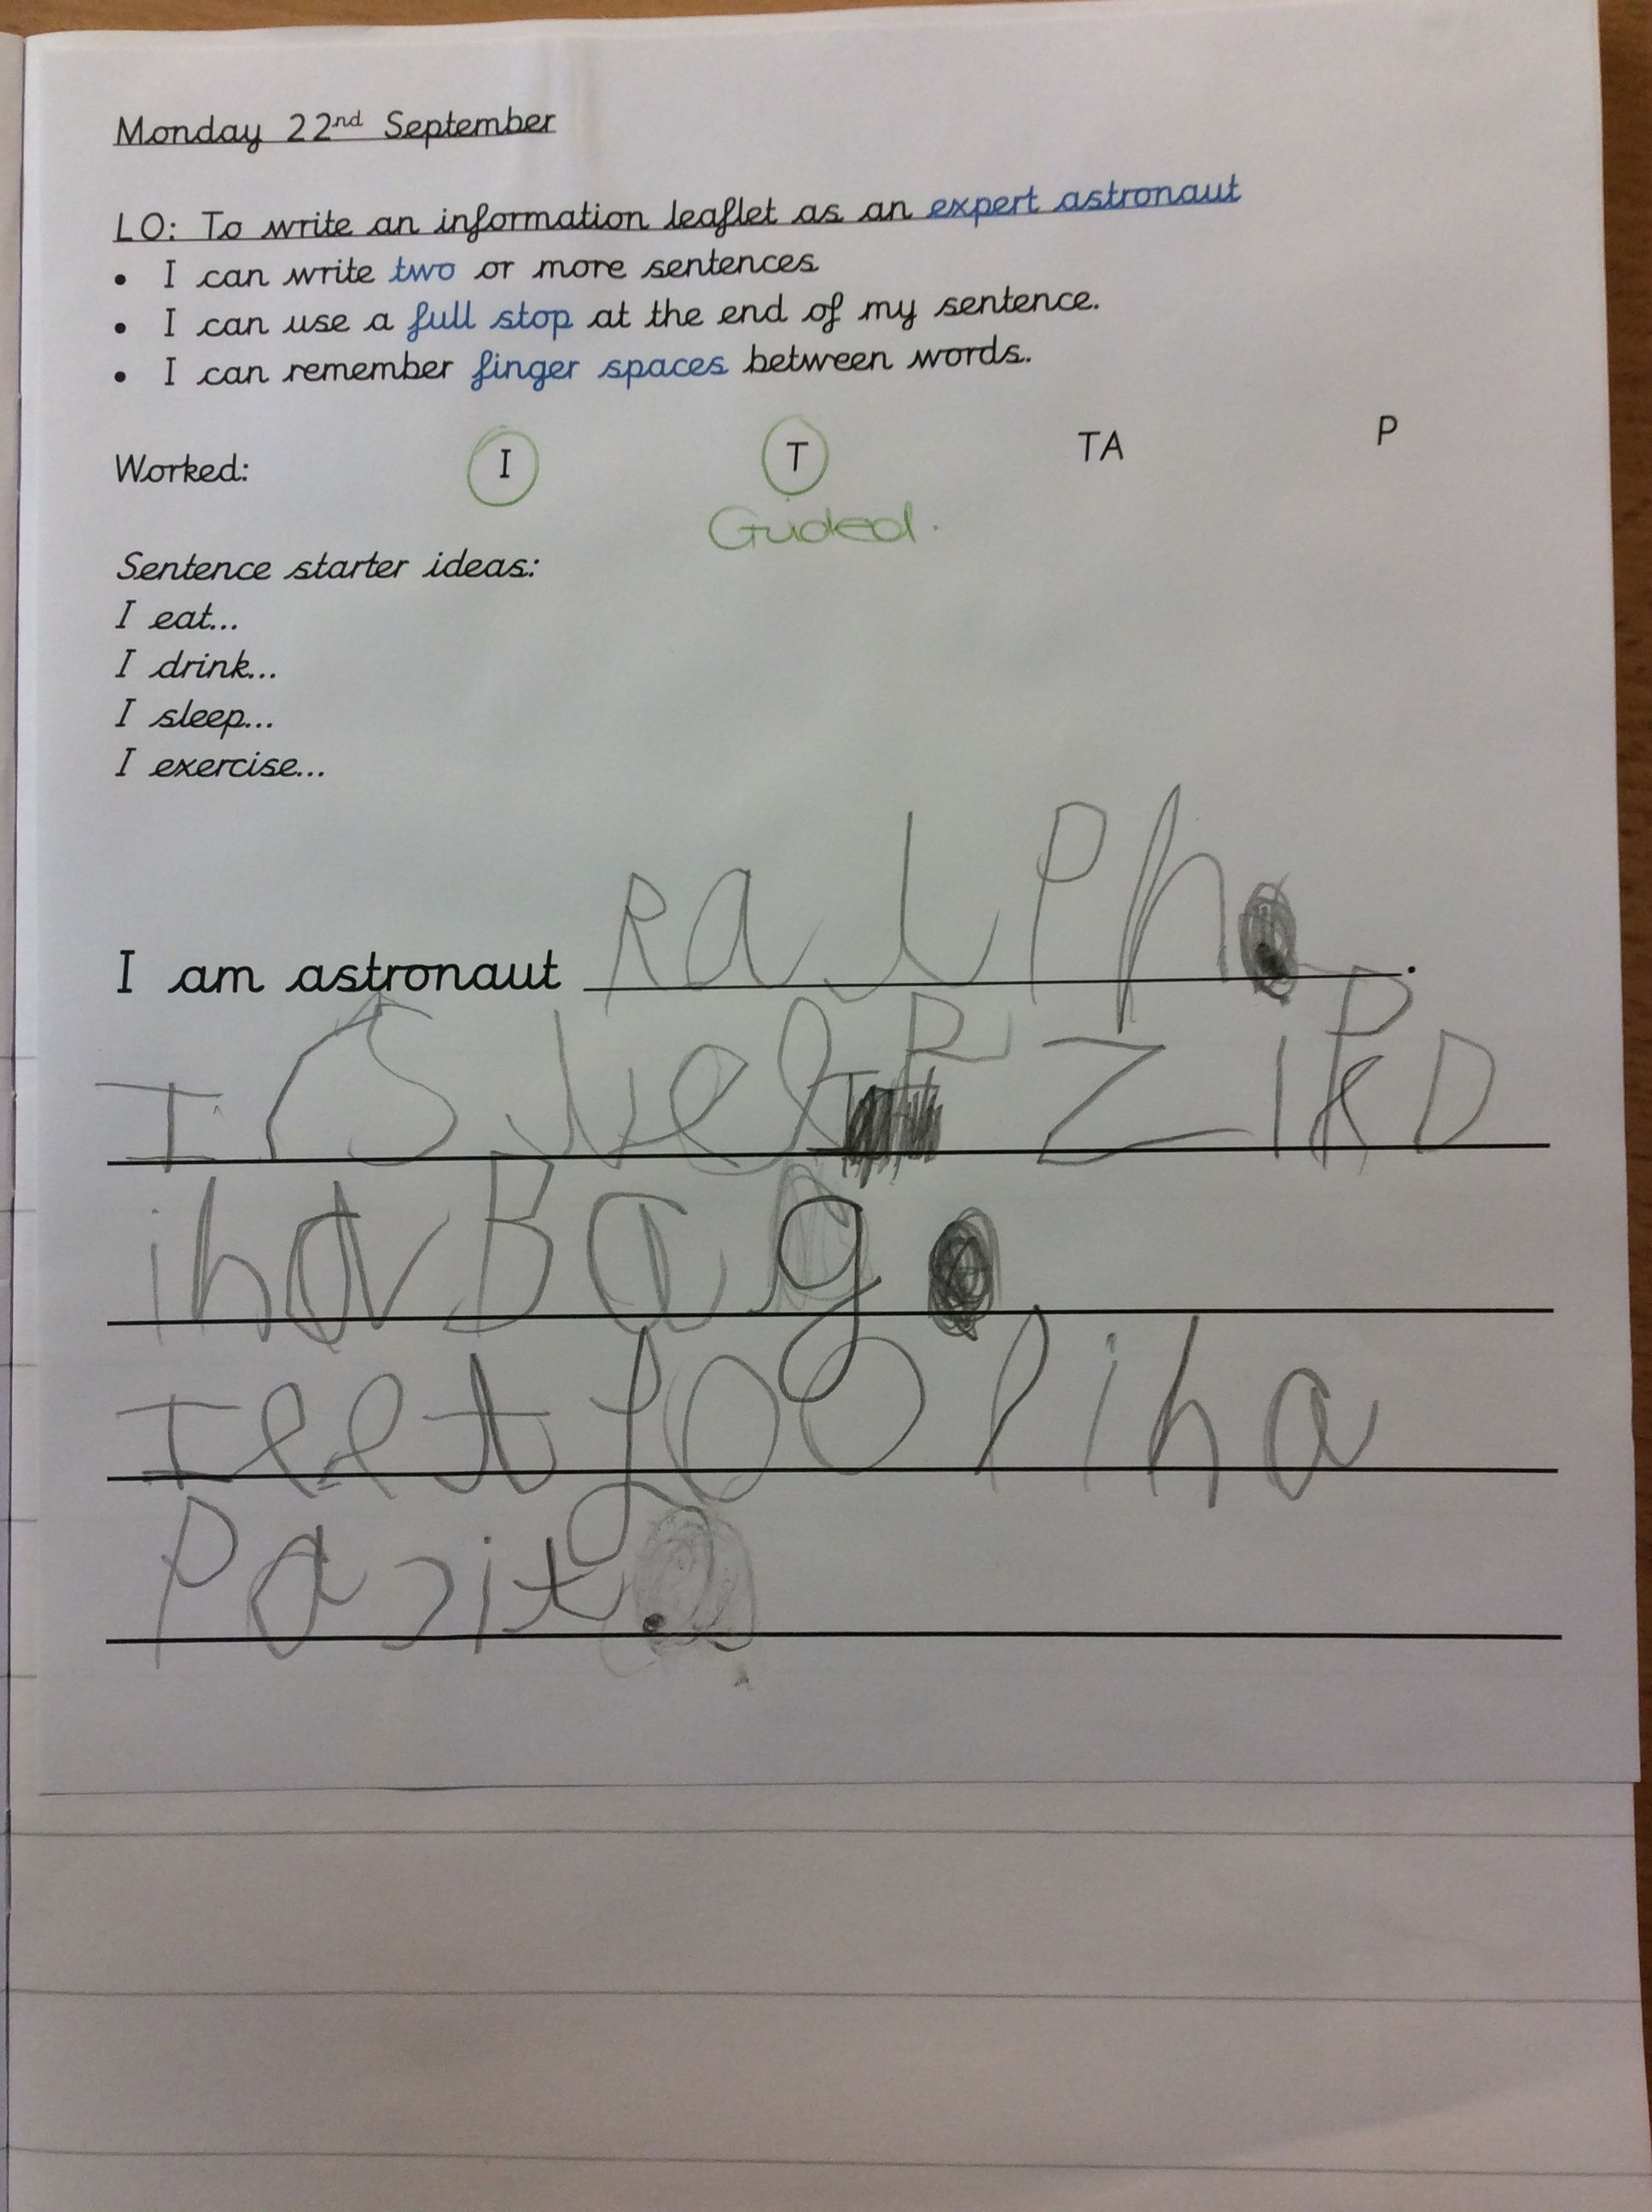 Monday 22nd September
LO: To write an information leaflet as an expert astronaut
• I can write two or more sentences
• I can use a full stop at the end of my sentence.
• I can remember finger spaces between words.
Worked: I T TA P
Guided.
Sentence starter ideas:
I eat...
I drink...
I sleep...
I exercise...
I am astronaut Ralph.
I
in a Bag.
I eet foo in a
Pasit.